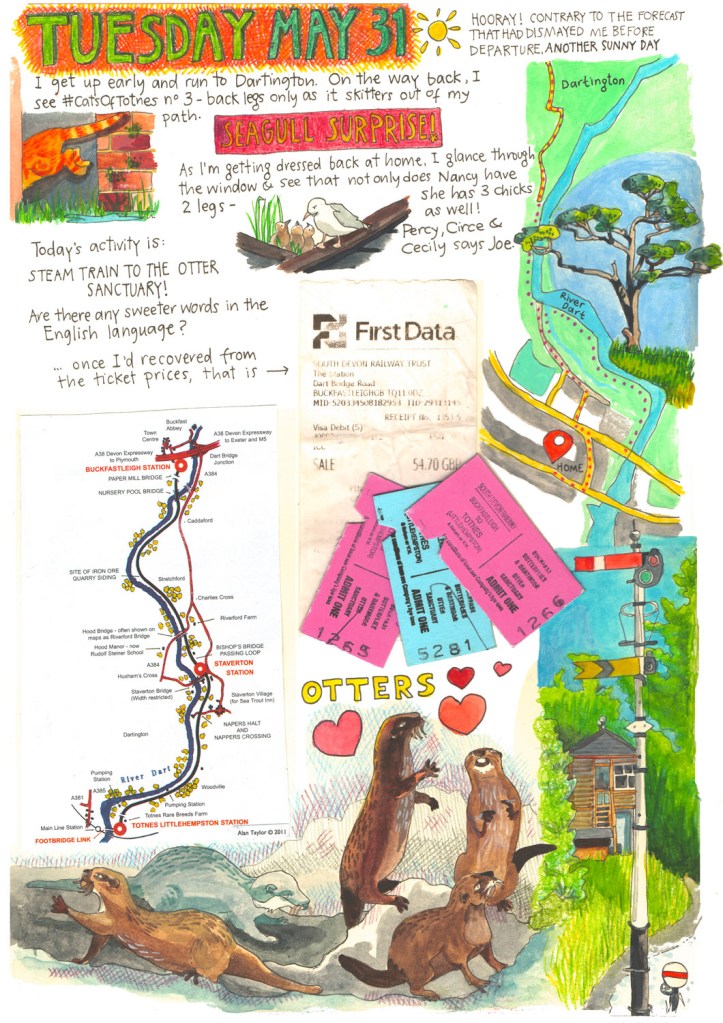 TUESDAY MAY 31
HOORAY! CONTRARY TO THE FORECAST
THAT HAD DISMAYED ME BEFORE
DEPARTURE, ANOTHER SUNNY DAY
I get up early and run to Dartington. On the way back, I
see #CatsOfTotnes nº 3 - back legs only as it skitters out of my
path.
SEAGULL SURPRISE!
As I'm getting dressed back at home, I glance through
the window & see that not only does Nancy have
2 legs -
she has 3 chicks
as well!
Percy, Circe &
Cecily says Joe.
Dartington
River
Dart
HOME
Today's activity is:
STEAM TRAIN TO THE OTTER
SANCTUARY!
Are there any sweeter words in the
English language?
... once I'd recovered from
the ticket prices, that is →
First Data
SOUTH DEVON RAILWAY TRUST
The Station
Dart Bridge Road
BUCKFASTLEIGH TQ11 0DZ
RECEIPT No.
Visa Debit (S)
SALE
54.70 GBP
Buckfast
Abbey
Town
Centre
A38 Devon Expressway
to Exeter and M5
A38 Devon Expressway
to Plymouth
Dart Bridge
Junction
BUCKFASTLEIGH STATION
A384
PAPER MILL BRIDGE
NURSERY POOL BRIDGE
Caddaford
SITE OF IRON ORE
QUARRY SIDING
Stretchford
Charlies Cross
Riverford Farm
Hood Bridge - often shown on
maps as Riverford Bridge
Hood Manor - now
Rudolf Steiner School
BISHOP'S BRIDGE
PASSING LOOP
A384
STAVERTON
STATION
Huxham's Cross
Staverton Bridge
(Width restricted)
Staverton Village
(for Sea Trout Inn)
NAPERS HALT
AND
NAPPERS CROSSING
Dartington
Pumping
Station
River Dart
Woodville
A385
A381
Pumping Station
Totnes Rare Breeds Farm
Main Line Station
TOTNES LITTLEHEMPSTON STATION
FOOTBRIDGE LINK
Alan Taylor © 2011
ADMIT ONE
1265
BUTTERFLIES
& DARTMOOR
OTTER
SANCTUARY
ADMIT ONE
5281
BUCKFASTLEIGH
TO
TOTNES
(LITTLEHEMPSTON)
BUTTERFLIES
& DARTMOOR
OTTER
SANCTUARY
ADMIT ONE
1266
OTTERS